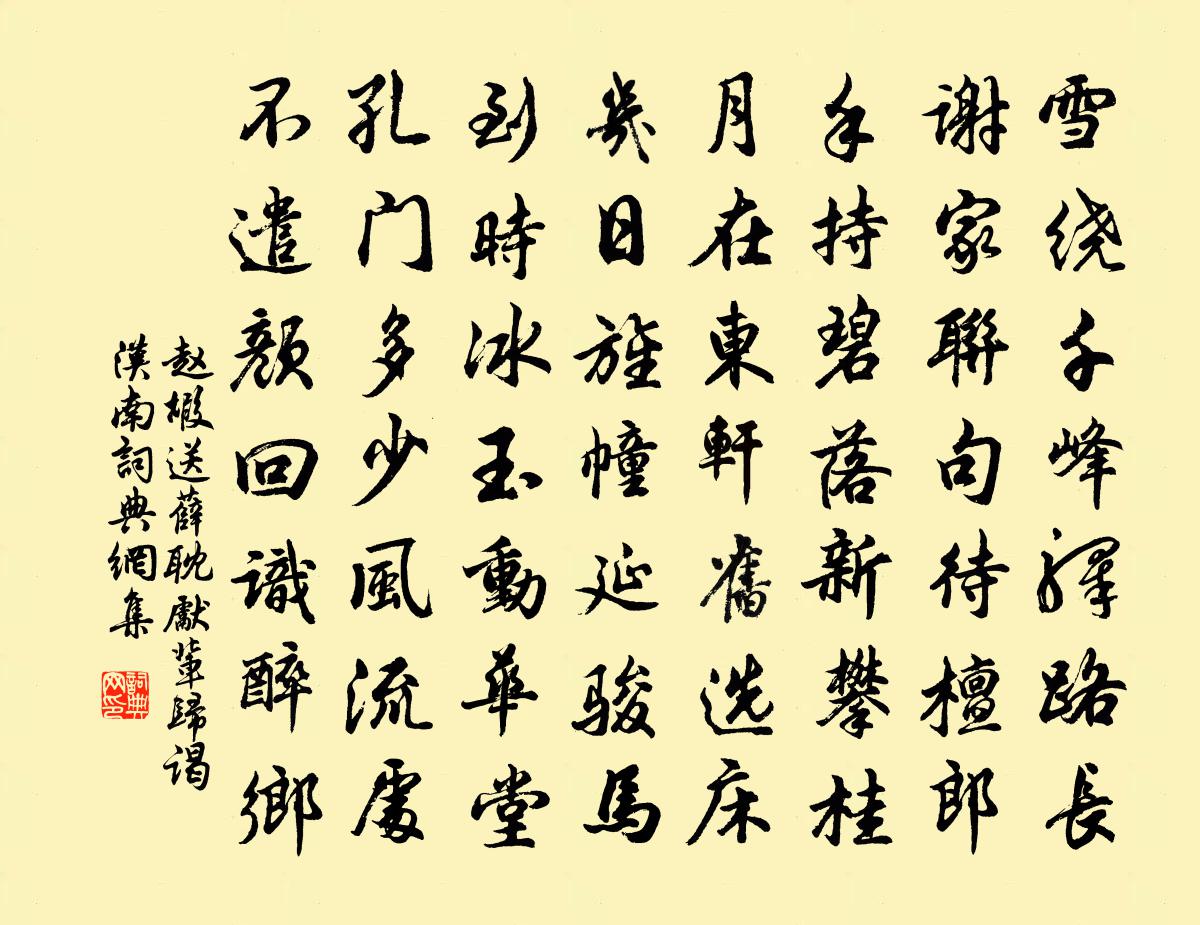 雪绕千峰驿路長
谢家聯句待檀郎
手持碧落新攀桂
月在東軒舊选床
幾日旌幢延骏馬
到時冰玉動華堂
孔门多少風流處
不遣颜回識醉鄉
赵嘏送薛耽厭輩歸谒
漢南詞典網集
詞典网印